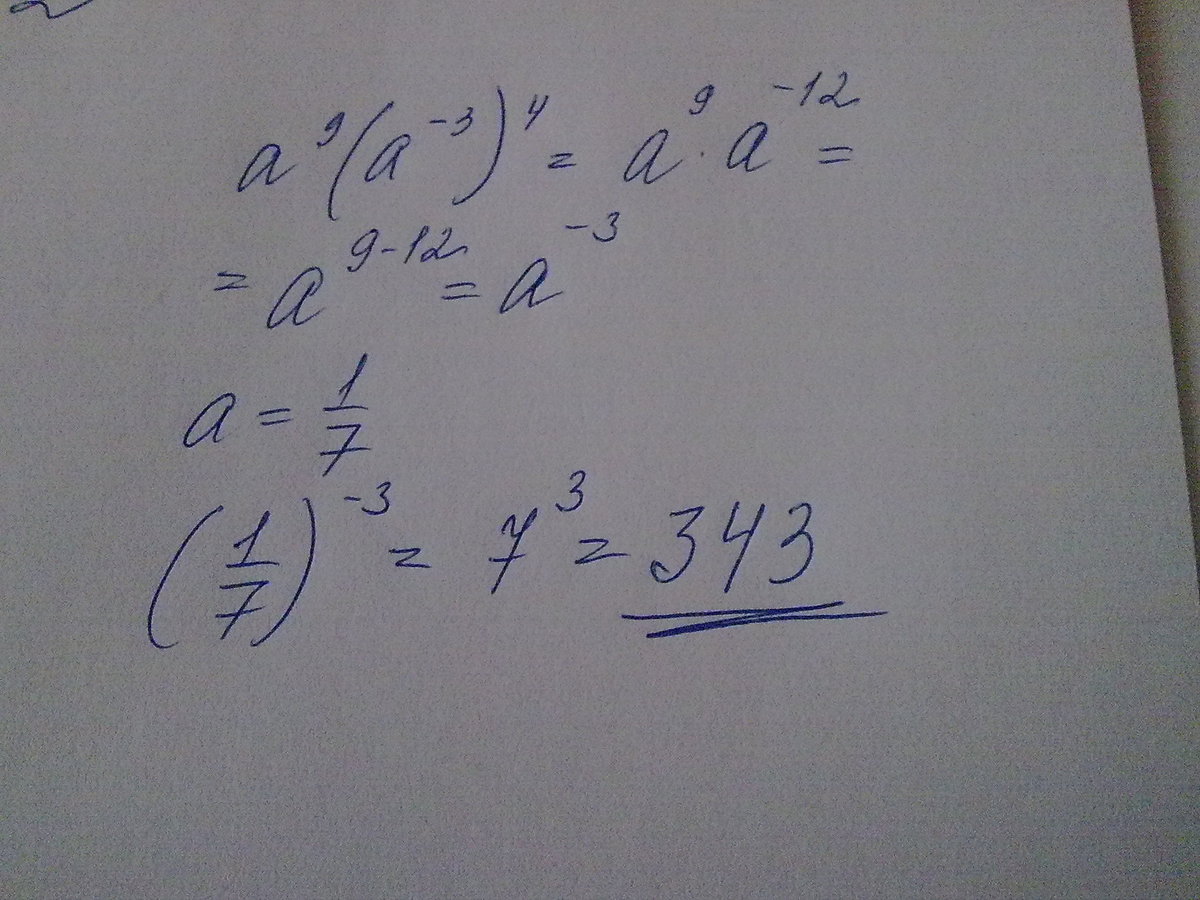 a⁹(a⁻³)⁴ = a⁹ · a⁻¹² =
= a⁹⁻¹² = a⁻³
a = 1/7
(1/7)⁻³ = 7³ = 343